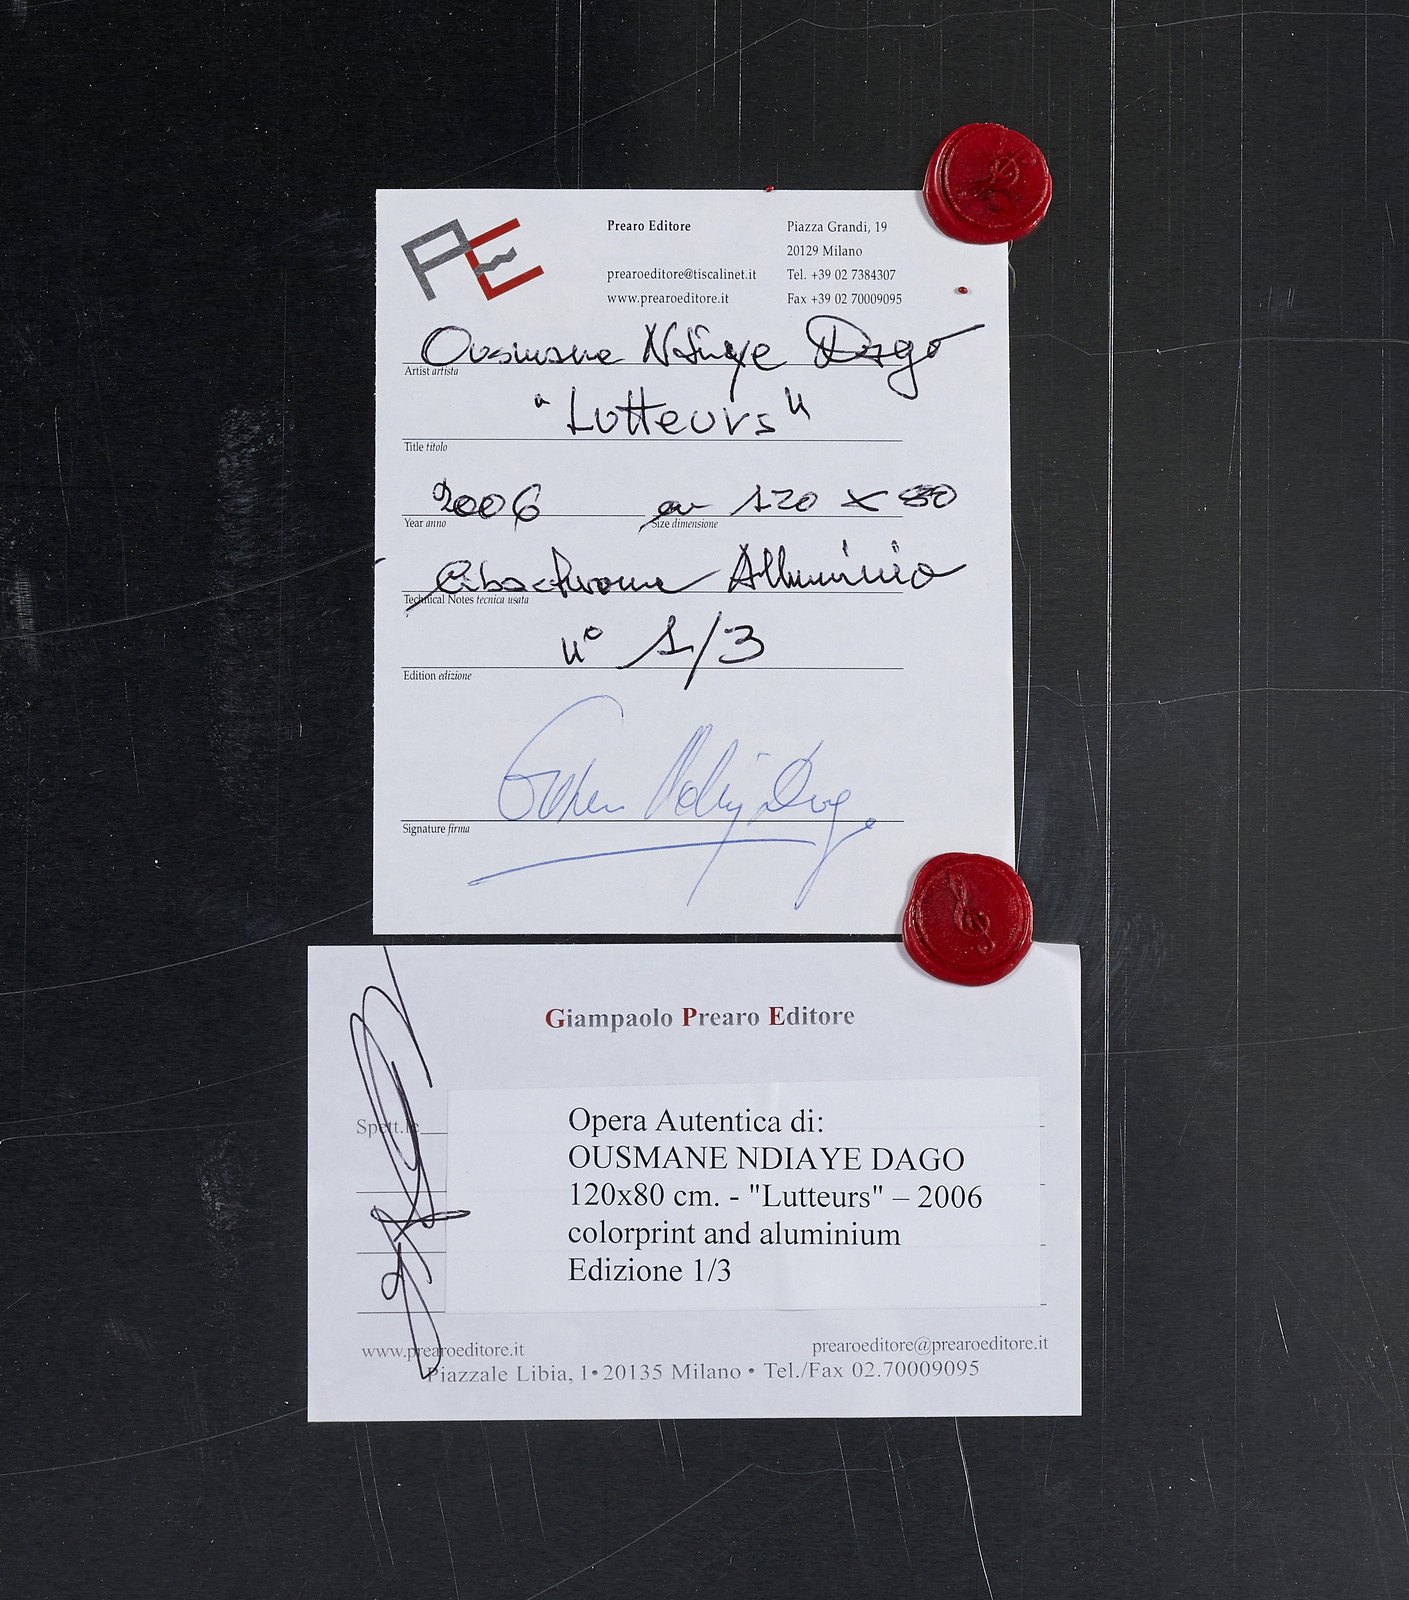 PE
Prearo Editore
Piazza Grandi, 19
20129 Milano
prearoeditore@tiscalinet.it
Tel. +39 02 7384307
www.prearoeditore.it
Fax +39 02 70009095
Ousmane Ndiaye Dago
Artist artista
"Lutteurs"
Title titolo
2006 cm 120 x 80
Year anno Size dimensione
Cibachrome Alluminio
Technical Notes tecnica usata
n° 1/3
Edition edizione
Signature firma
Giampaolo Prearo Editore
Spett.le
Opera Autentica di:
OUSMANE NDIAYE DAGO
120x80 cm. - "Lutteurs" – 2006
colorprint and aluminium
Edizione 1/3
www.prearoeditore.it
prearoeditore@prearoeditore.it
Piazzale Libia, 1•20135 Milano • Tel./Fax 02.70009095